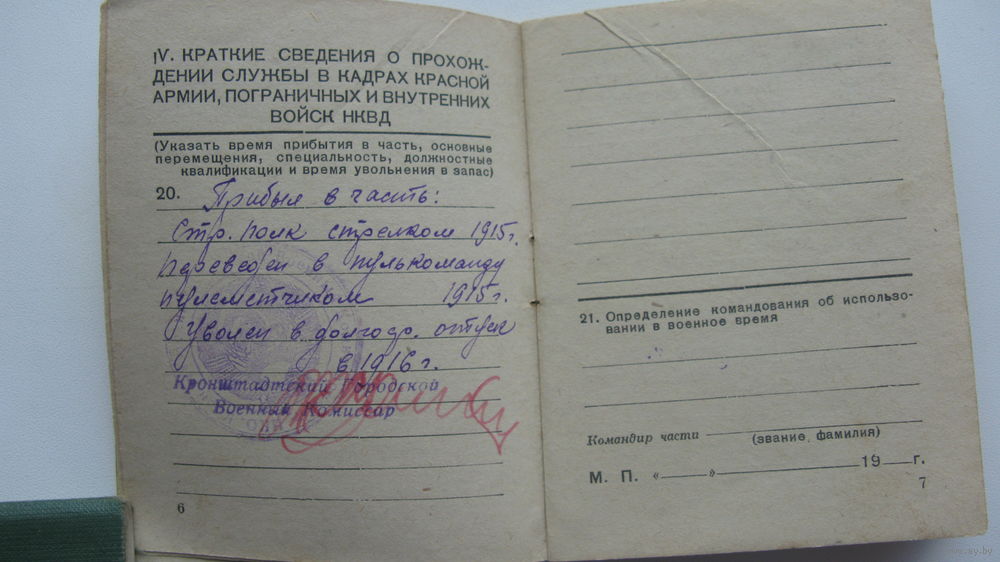 IV. КРАТКИЕ СВЕДЕНИЯ О ПРОХОЖ-
ДЕНИИ СЛУЖБЫ В КАДРАХ КРАСНОЙ
АРМИИ, ПОГРАНИЧНЫХ И ВНУТРЕННИХ
ВОЙСК НКВД
(Указать время прибытия в часть, основные
перемещения, специальность, должностные
квалификации и время увольнения в запас)
20. Прибыл в часть:
Стр. полк стрелком 1915г.
переведен в пулькоманду
пулеметчиком 1915г.
Уволен в долгоср. отпуск
в 1916г.
Кронштадтский Городской
Военный Комиссар
6
21. Определение командования об использо-
вании в военное время
Командир части
(звание, фамилия)
М. П. « » 19 г.
7